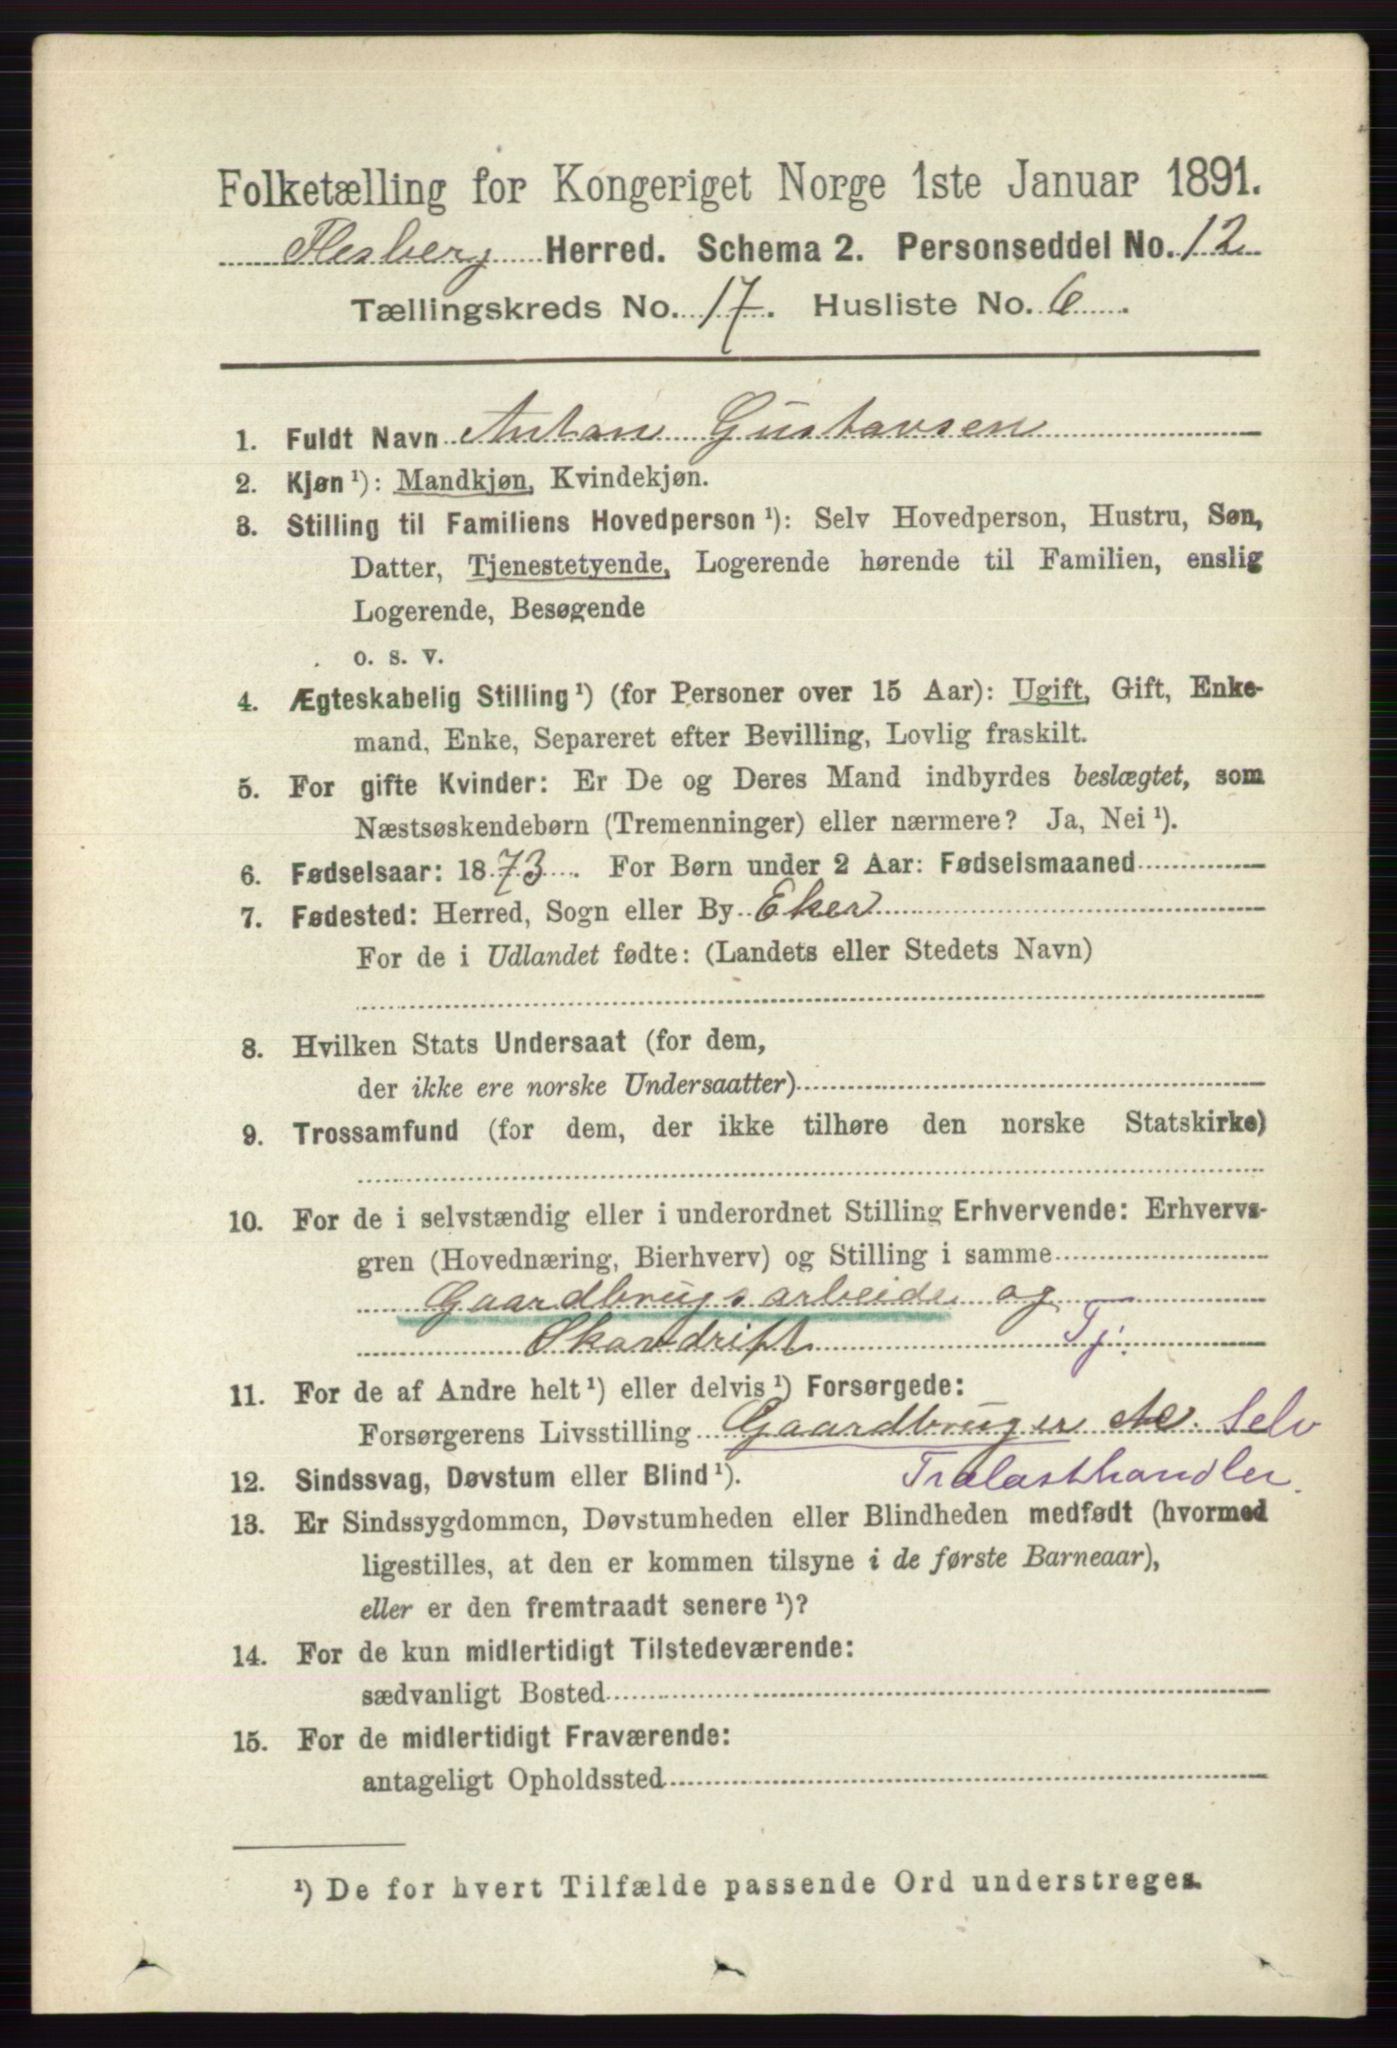 Folketælling for Kongeriget Norge 1ste Januar 1891.
Flesberg Herred. Schema 2. Personseddel No. 12
Tællingskreds No. 17. Husliste No. 6.
1. Fuldt Navn Anton Gustavsen
2. Kjøn ¹): Mandkjøn, Kvindekjøn.
3. Stilling til Familiens Hovedperson ¹): Selv Hovedperson, Hustru, Søn,
Datter, Tjenestetyende, Logerende hørende til Familien, enslig
Logerende, Besøgende
o. s. v.
4. Ægteskabelig Stilling ¹) (for Personer over 15 Aar): Ugift, Gift, Enke-
mand, Enke, Separeret efter Bevilling, Lovlig fraskilt.
5. For gifte Kvinder: Er De og Deres Mand indbyrdes beslægtet, som
Næstsøskendebørn (Tremenninger) eller nærmere? Ja, Nei ¹).
6. Fødselsaar: 1873. For Børn under 2 Aar: Fødselsmaaned
7. Fødested: Herred, Sogn eller By Eker
For de i Udlandet fødte: (Landets eller Stedets Navn)
8. Hvilken Stats Undersaat (for dem,
der ikke ere norske Undersaatter)
9. Trossamfund (for dem, der ikke tilhøre den norske Statskirke)
10. For de i selvstændig eller i underordnet Stilling Erhvervende: Erhvervs-
gren (Hovednæring, Bierhverv) og Stilling i samme
Gaardbrugsarbeide og
Skovdrift Tj.
11. For de af Andre helt ¹) eller delvis ¹) Forsørgede:
Forsørgerens Livsstilling Gaardbruger Selv
12. Sindssvag, Døvstum eller Blind ¹). Trælasthandler.
13. Er Sindssygdommen, Døvstumheden eller Blindheden medfødt (hvormed
ligestilles, at den er kommen tilsyne i de første Barneaar),
eller er den fremtraadt senere ¹)?
14. For de kun midlertidigt Tilstedeværende:
sædvanligt Bosted
15. For de midlertidigt Fraværende:
antageligt Opholdssted
¹) De for hvert Tilfælde passende Ord understreges.